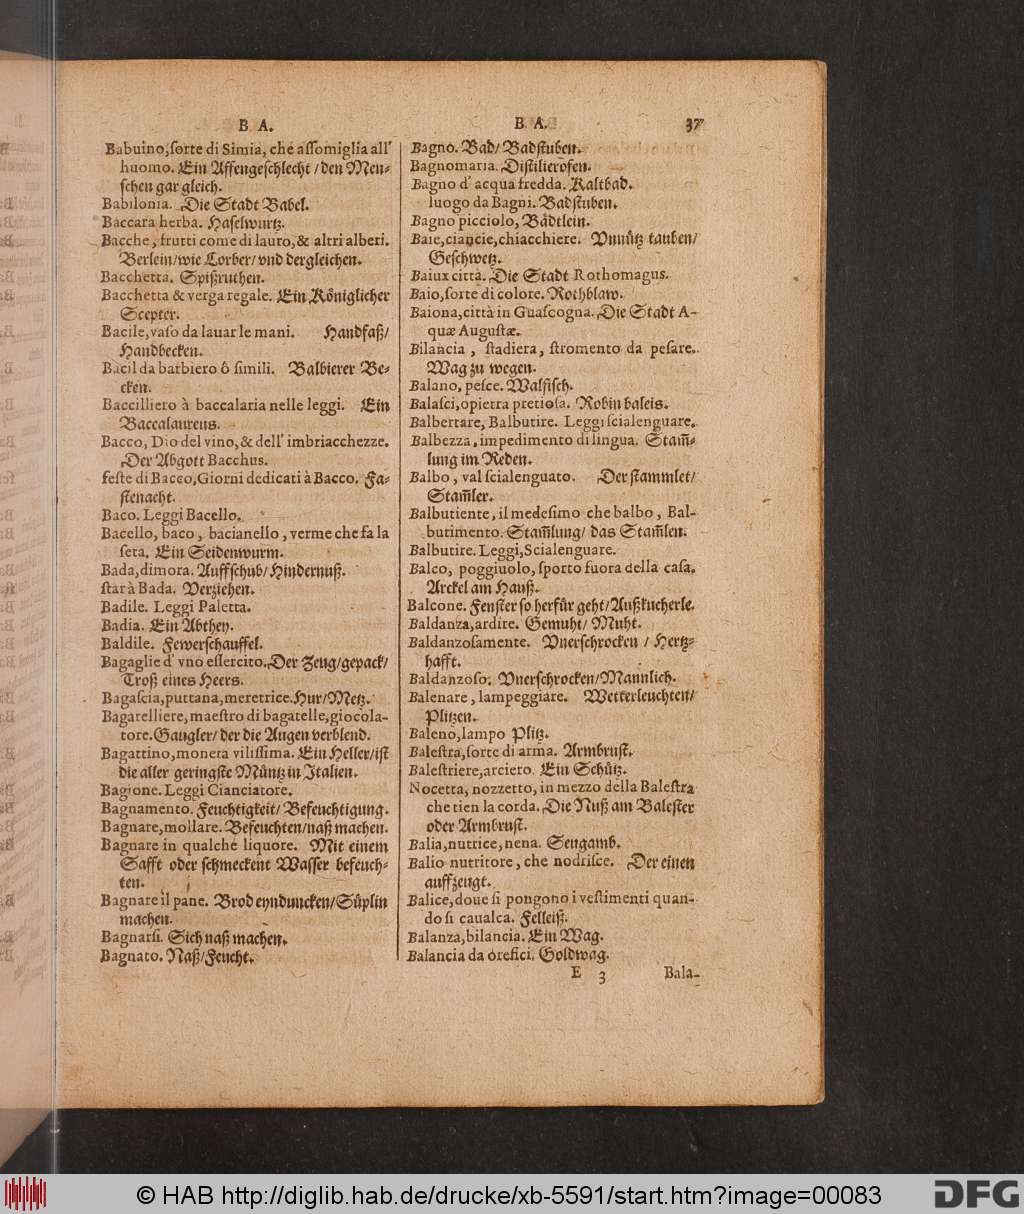 B A.
Babuino,ſorte di Simia, che aſſomiglia all'
huomo. Ein Affengeſchlecht / den Men-
ſchen gar gleich.
Babilonia. Die Stadt Babel.
Baccara herba. Haſelwurtz.
Bacche, frutti come di lauro,& altri alberi.
Berlein/wie Lorber/ vnd dergleichen.
Bacchetta. Spißruthen.
Bacchetta & verga regale. Ein Königlicher
Scepter.
Bacile,vaſo da lauar le mani. Handfaß/
Handbecken.
Bacil da barbiero ô ſimili. Balbierer Be-
cken.
Baccilliero à baccalaria nelle leggi. Ein
Baccalaureus.
Bacco, Dio del vino,& dell' imbriacchezze.
Der Abgott Bacchus.
feſte di Bacco,Giorni dedicati à Bacco. Fa-
ſtenacht.
Baco. Leggi Bacello.
Bacello, baco, bacianello, verme che fa la
ſeta. Ein Seidenwurm.
Bada,dimora. Auffſchub/ Hindernuß.
ſtar à Bada. Verziehen.
Badile. Leggi Paletta.
Badia. Ein Abthey.
Baldile. Fewerſchauffel.
Bagaglie d' vno eſſercito. Der Zeug/gepack/
Troß eines Heers.
Bagaſcia,puttana,meretrice. Hur/ Metz.
Bagatelliere,maeſtro di bagatelle,giocola-
tore. Gaugler/ der die Augen verblend.
Bagattino,moneta viliſſima. Ein Heller/iſt
die aller geringſte Müntz in Italien.
Bagione. Leggi Cianciatore.
Bagnamento. Feuchtigkeit/ Befeuchtigung.
Bagnare,mollare. Befeuchten/naß machen.
Bagnare in qualche liquore. Mit einem
Safft oder ſchmeckent Waſſer befeuch-
ten.
Bagnare il pane. Brod eynduncken/Süplin
machen.
Bagnarſi. Sich naß machen.
Bagnato. Naß/Feucht.
B. A. 37
Bagno. Bad/ Badſtuben.
Bagnomaria. Diſtilierofen.
Bagno d' acqua fredda. Kaltbad.
luogo da Bagni. Badſtuben.
Bagno picciolo, Bädtlein.
Baie,ciancie,chiacchiere. Vnnütz tauben/
Geſchwetz.
Baiux città. Die Stadt Rothomagus.
Baio,ſorte di colore. Rothblaw.
Baiona,città in Guaſcogna. Die Stadt A-
quæ Auguſtæ.
Bilancia, ſtadiera, ſtromento da peſare.
Wag zu wegen.
Balano, peſce. Walfiſch.
Balaſci,o pietra pretioſa. Robin baleis.
Balbertare, Balbutire. Leggi ſcialenguare.
Balbezza, impedimento di lingua. Stam̄-
lung im Reden.
Balbo, val ſcialenguato. Der ſtammlet/
Stam̄ler.
Balbutiente, il medeſimo che balbo, Bal-
butimento. Stam̄lung/ das Stam̄len.
Balbutire. Leggi,Scialenguare.
Balco, poggiuolo, ſporto fuora della caſa.
Arckel am Hauß.
Balcone. Fenſter ſo herfür geht/Außkucherle.
Baldanza,ardire. Gemuht/ Muht.
Baldanzoſamente. Vnerſchrocken / Hertz-
hafft.
Baldanzoſo. Vnerſchrocken/Mannlich.
Balenare, lampeggiare. Wetterleuchten/
Plitzen.
Baleno,lampo Plitz.
Baleſtra,ſorte di arma. Armbruſt.
Baleſtriere,arciero. Ein Schütz.
Nocetta, nozzetto, in mezzo della Baleſtra
che tien la corda. Die Nuß am Baleſter
oder Armbruſt.
Balia,nutrice, nena. Seugamb.
Balio nutritore, che nodriſce. Der einen
auffzeugt.
Balice,doue ſi pongono i veſtimenti quan-
do ſi caualca. Felleiß.
Balanza,bilancia. Ein Wag.
Balancia da orefici. Goldwag.
E 3 Bala-
© HAB http://diglib.hab.de/drucke/xb-5591/start.htm?image=00083
DFG